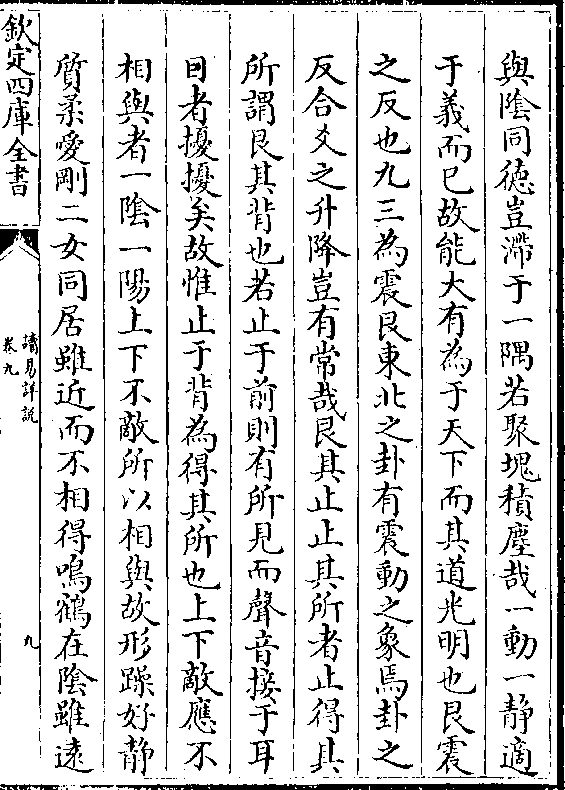 與陰同德豈滯于一隅若聚塊積塵哉一動一静適
于義而已故能大有為于天下而其道光明也艮震
之反也九三為震艮東北之卦有震動之象焉卦之
反合爻之升降豈有常哉艮其止止其所者止得其
所謂艮其背也若止于前則有所見而聲音接于耳
目者擾擾矣故惟止于背為得其所也上下敵應不
相與者一陰一陽上下不敵所以相與故形躁好静
質柔愛剛二女同居雖近而不相得鳴鶴在陰雖逺
欽定四庫全書
讀易詳說
卷九
九